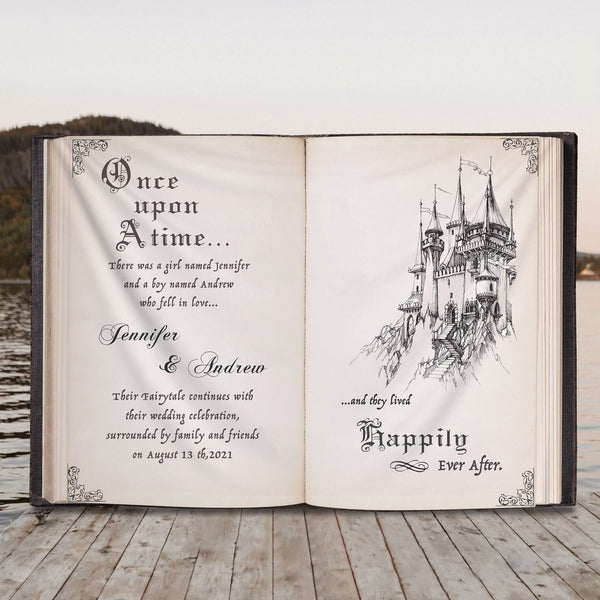 Once
upon
A time...
There was a girl named Jennifer
and a boy named Andrew
who fell in love...
Jennifer
& Andrew
Their Fairytale continues with
their wedding celebration,
surrounded by family and friends
on August 13 th,2021
...and they lived
Happily
Ever After.